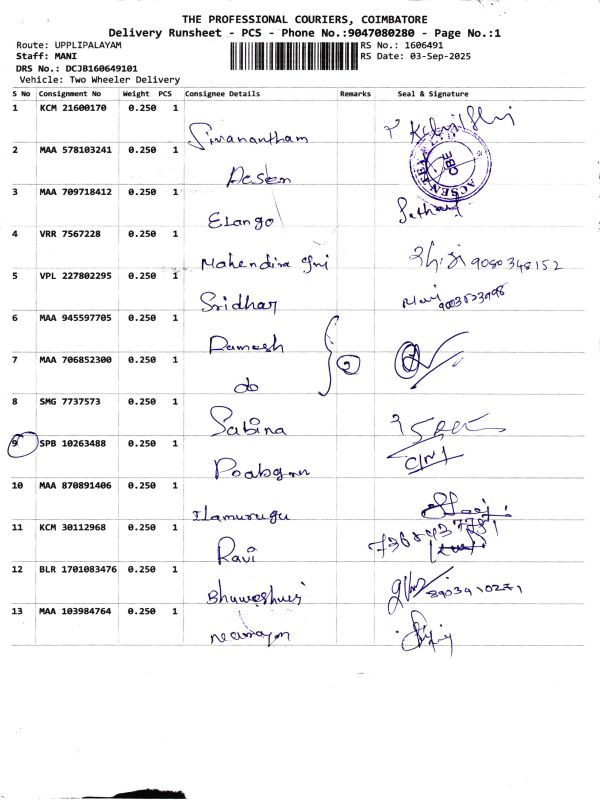 THE PROFESSIONAL COURIERS, COIMBATORE
Delivery Runsheet - PCS - Phone No.:9047080280 - Page No.:1
Route: UPPLIPALAYAM RS No.: 1606491
Staff: MANI RS Date: 03-Sep-2025
DRS No.: DCJB160649101
Vehicle: Two Wheeler Delivery
S No Consignment No Weight PCS Consignee Details Remarks Seal & Signature
1 KCM 21600170 0.250 1
Sivanantham
2 MAA 578103241 0.250 1
CBE
3 MAA 709718412 0.250 1
Elango
4 VRR 7567228 0.250 1
Mahendira 9080348152
5 VPL 227802295 0.250 1
Sridhar Mani
6 MAA 945597705 0.250 1
Ramesh
7 MAA 706852300 0.250 1 2
do
8 SMG 7737573 0.250 1
Sabina
9 SPB 10263488 0.250 1
10 MAA 870891406 0.250 1
Ilamurugu
11 KCM 30112968 0.250 1
Ravi
12 BLR 1701083476 0.250 1
Bhuweshwri
13 MAA 103984764 0.250 1